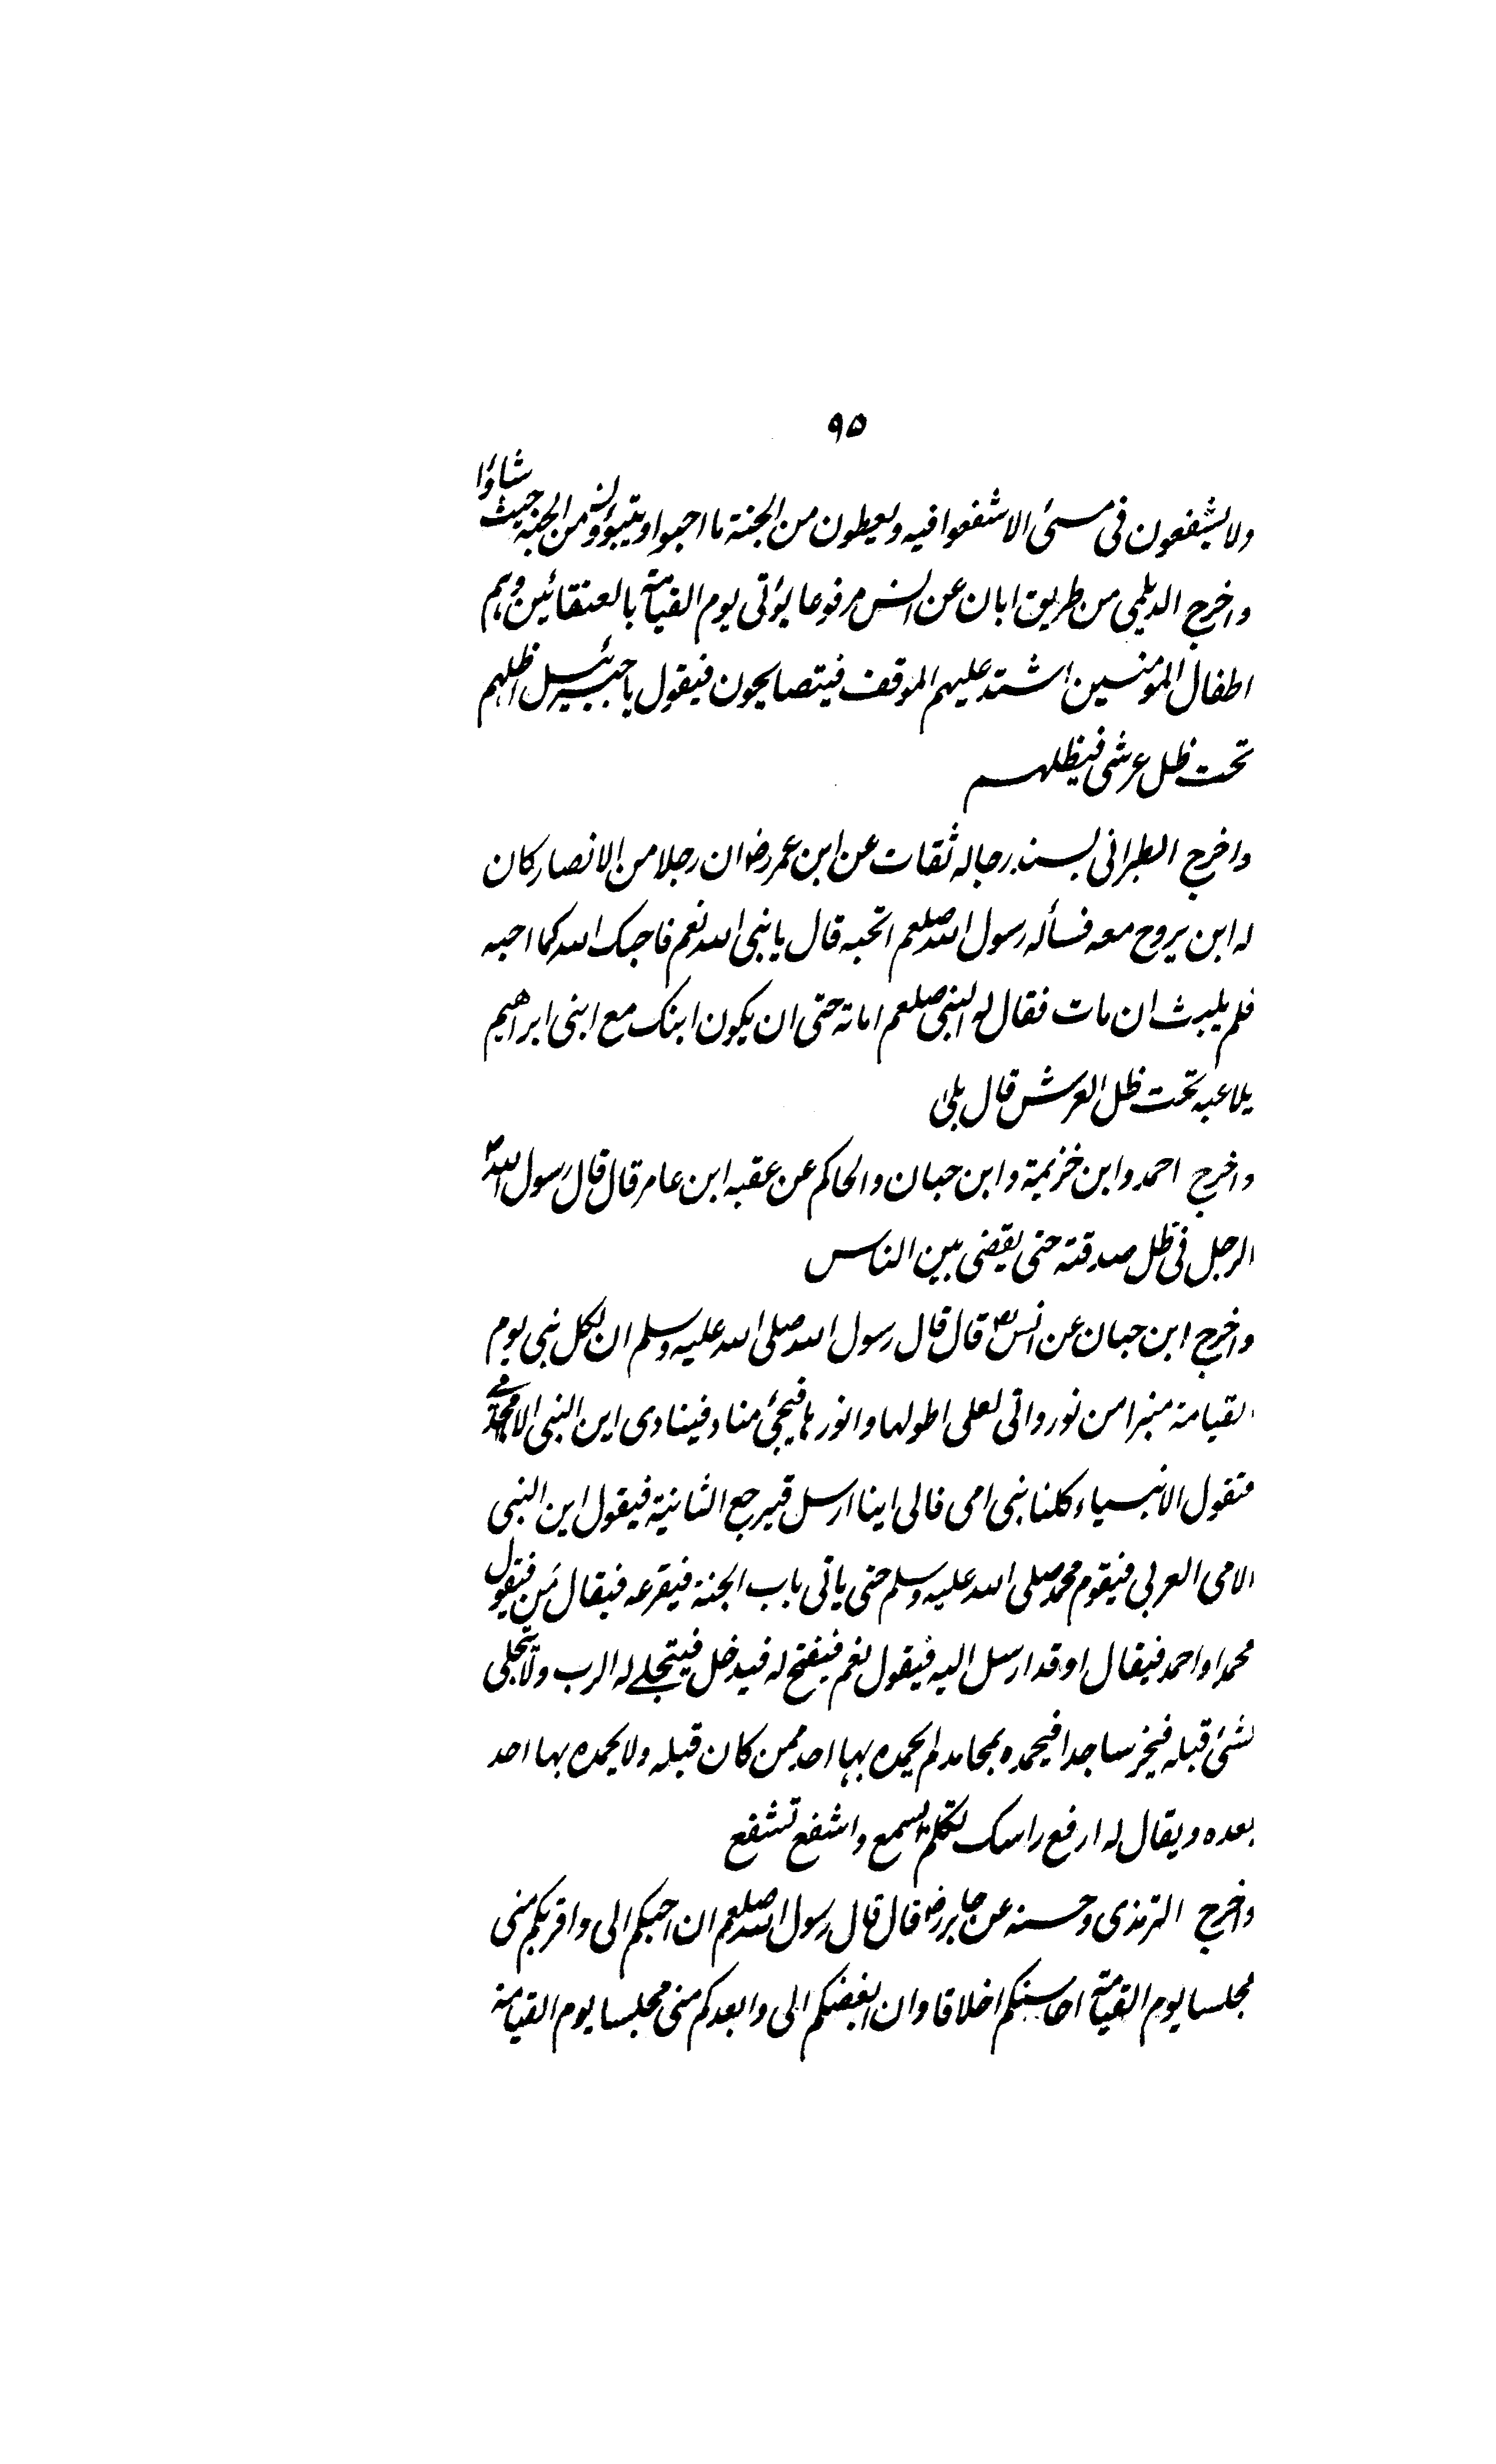 ٩٥
ولا يشفعون فى مسئ الا شفعوا فيه ويعطون من الجنة ما احبوا ويتبوؤن من الجنة حيث شاؤا
واخرج الديلمى من طريق ابان عن انس مرفوعا يؤتى يوم القيامة بالعنقائين وهم
اطفال المومنين اشتد عليهم الموقف فيتصايحون فيقول يا جبرئيل اظلهم
تحت ظل عرشى فيظلهم
واخرج الطبرانى بسند رجاله ثقات عن ابن عمر رض ان رجلا من الانصار كان
له ابن يروح معه فسأله رسول الله صلعم اتحبه قال يا نبى الله نعم فاحبك الله كما احبه
فلم يلبث ان مات فقال له النبى صلعم اما ته حتى ان يكون ابنك مع ابنى ابراهيم
يلاعبه تحت ظل العرش قال بلى
واخرج احمد وابن خزيمة وابن حبان والحاكم عن عقبه ابن عامر قال قال رسول الله ص
الرجل فى ظل صدقته حتى يقضى بين الناس
واخرج ابن حبان عن انس رض قال قال رسول الله صلى الله عليه وسلم ان لكل نبى يوم
القيامة منبرا من نور وانى لعلى اطولها وانورها فيجئ مناد فينادى اين النبى الامى
فتقول الانبياء كلنا نبى امى فالى اينا ارسل فيرجع الثانية فيقول اين النبى
الامى العربى فيقوم محمد صلى الله عليه وسلم حتى ياتى باب الجنة فيقرعه فيقال من فيقول
محمد او احمد فيقال او قد ارسل اليه فيقول نعم فيفتح له فيدخل فيتجلے له الرب ولا يتجلى
لشئ قبله فيخر ساجدا فيحمده بمحامد لم يحمده بها احد ممن كان قبله ولا يحمده بها احد
بعده ويقال له ارفع راسك تكلم تسمع واشفع تشفع
واخرج الترمذى وحسنه عن جابر رض قال قال رسول الله صلعم ان احبكم الى واقربكم منى
مجلسا يوم القيامة احاسنكم اخلاقا وان ابغضكم الى وابعدكم منى مجلسا يوم القيامة